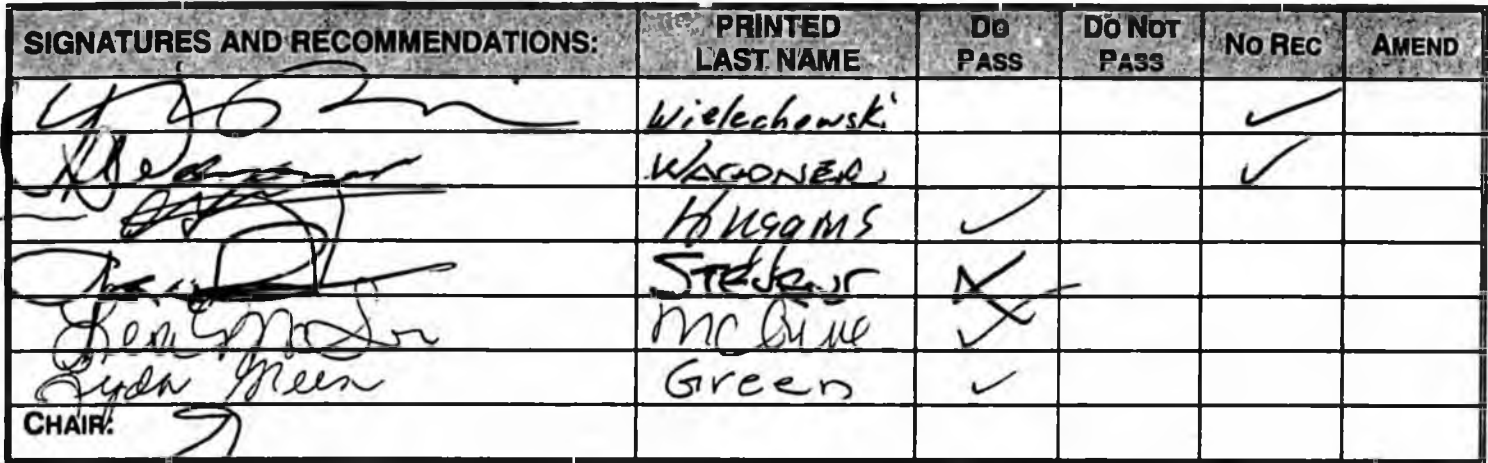 SIGNATURES AND RECOMMENDATIONS: PRINTED LAST NAME DO PASS DO NOT PASS NO REC AMEND
Wielechowski ✓
WAGONER ✓
Huggins ✓
Stevens ✓
McGuire ✓
Lyda Green Green ✓
CHAIR: